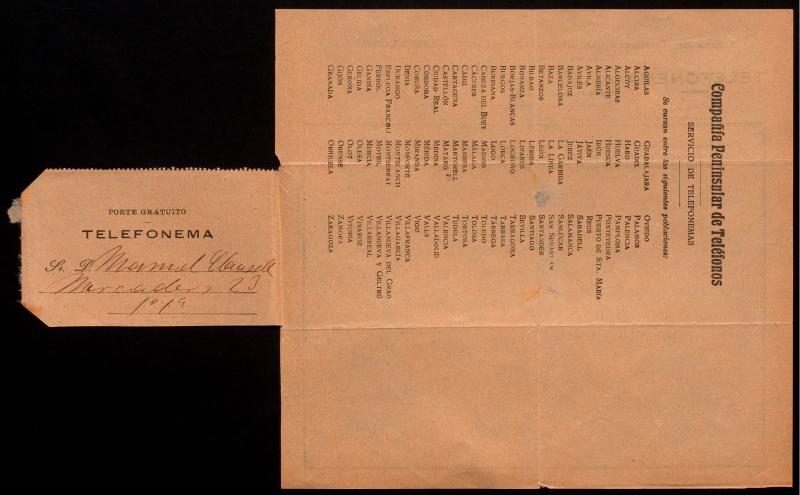 PORTE GRATUITO
TELEFONEMA
Sr. D. Manuel
Mercaders 23
1º 1ª
Compañía Peninsular de Teléfonos
SERVICIO DE TELEFONEMAS
Se cursan entre las siguientes poblaciones:
AGUILAS
ALCIRA
ALCOY
ALGECIRAS
ALICANTE
ALMERÍA
AVILA
AVILÉS
BADAJOZ
BARCELONA
BAZA
BETANZOS
BILBAO
BONANZA
BORJAS-BLANCAS
BURGOS
BURRIANA
CABEZA DEL BUEY
CÁCERES
CÁDIZ
CARTAGENA
CASTELLÓN
CIUDAD REAL
CÓRDOBA
CORUÑA
DENIA
DURANGO
ESPLUGA FRANCOLÍ
FERROL
GANDÍA
GELIDA
GERONA
GIJÓN
GRANADA
GUADALAJARA
GUADIX
HARO
HUELVA
HUESCA
IRÚN
JAÉN
JÁTIVA
JEREZ
LA GARRIGA
LA LÍNEA
LEÓN
LÉRIDA
LINARES
LOGROÑO
LORCA
LUGO
MADRID
MÁLAGA
MANRESA
MARTORELL
MATARÓ
MEDINA
MÉRIDA
MIRANDA
MONFORTE
MONTBLANCH
MONTSERRAT
MOTRIL
MURCIA
OLESA
OLOT
ORENSE
ORIHUELA
OVIEDO
PALAMÓS
PALENCIA
PAMPLONA
PONTEVEDRA
PUERTO DE STA. MARÍA
REUS
SABADELL
SALAMANCA
SANLÚCAR
SAN SEBASTIÁN
SANTANDER
SANTIAGO
SEVILLA
TARRAGONA
TARRASA
TÁRREGA
TOLEDO
TOLOSA
TORTOSA
TUDELA
VALENCIA
VALLADOLID
VALLS
VIGO
VILLAFRANCA
VILLAGARCÍA
VILLANUEVA DEL GRAO
VILLANUEVA Y GELTRÚ
VILLARREAL
VINAROZ
VITORIA
ZAMORA
ZARAGOZA